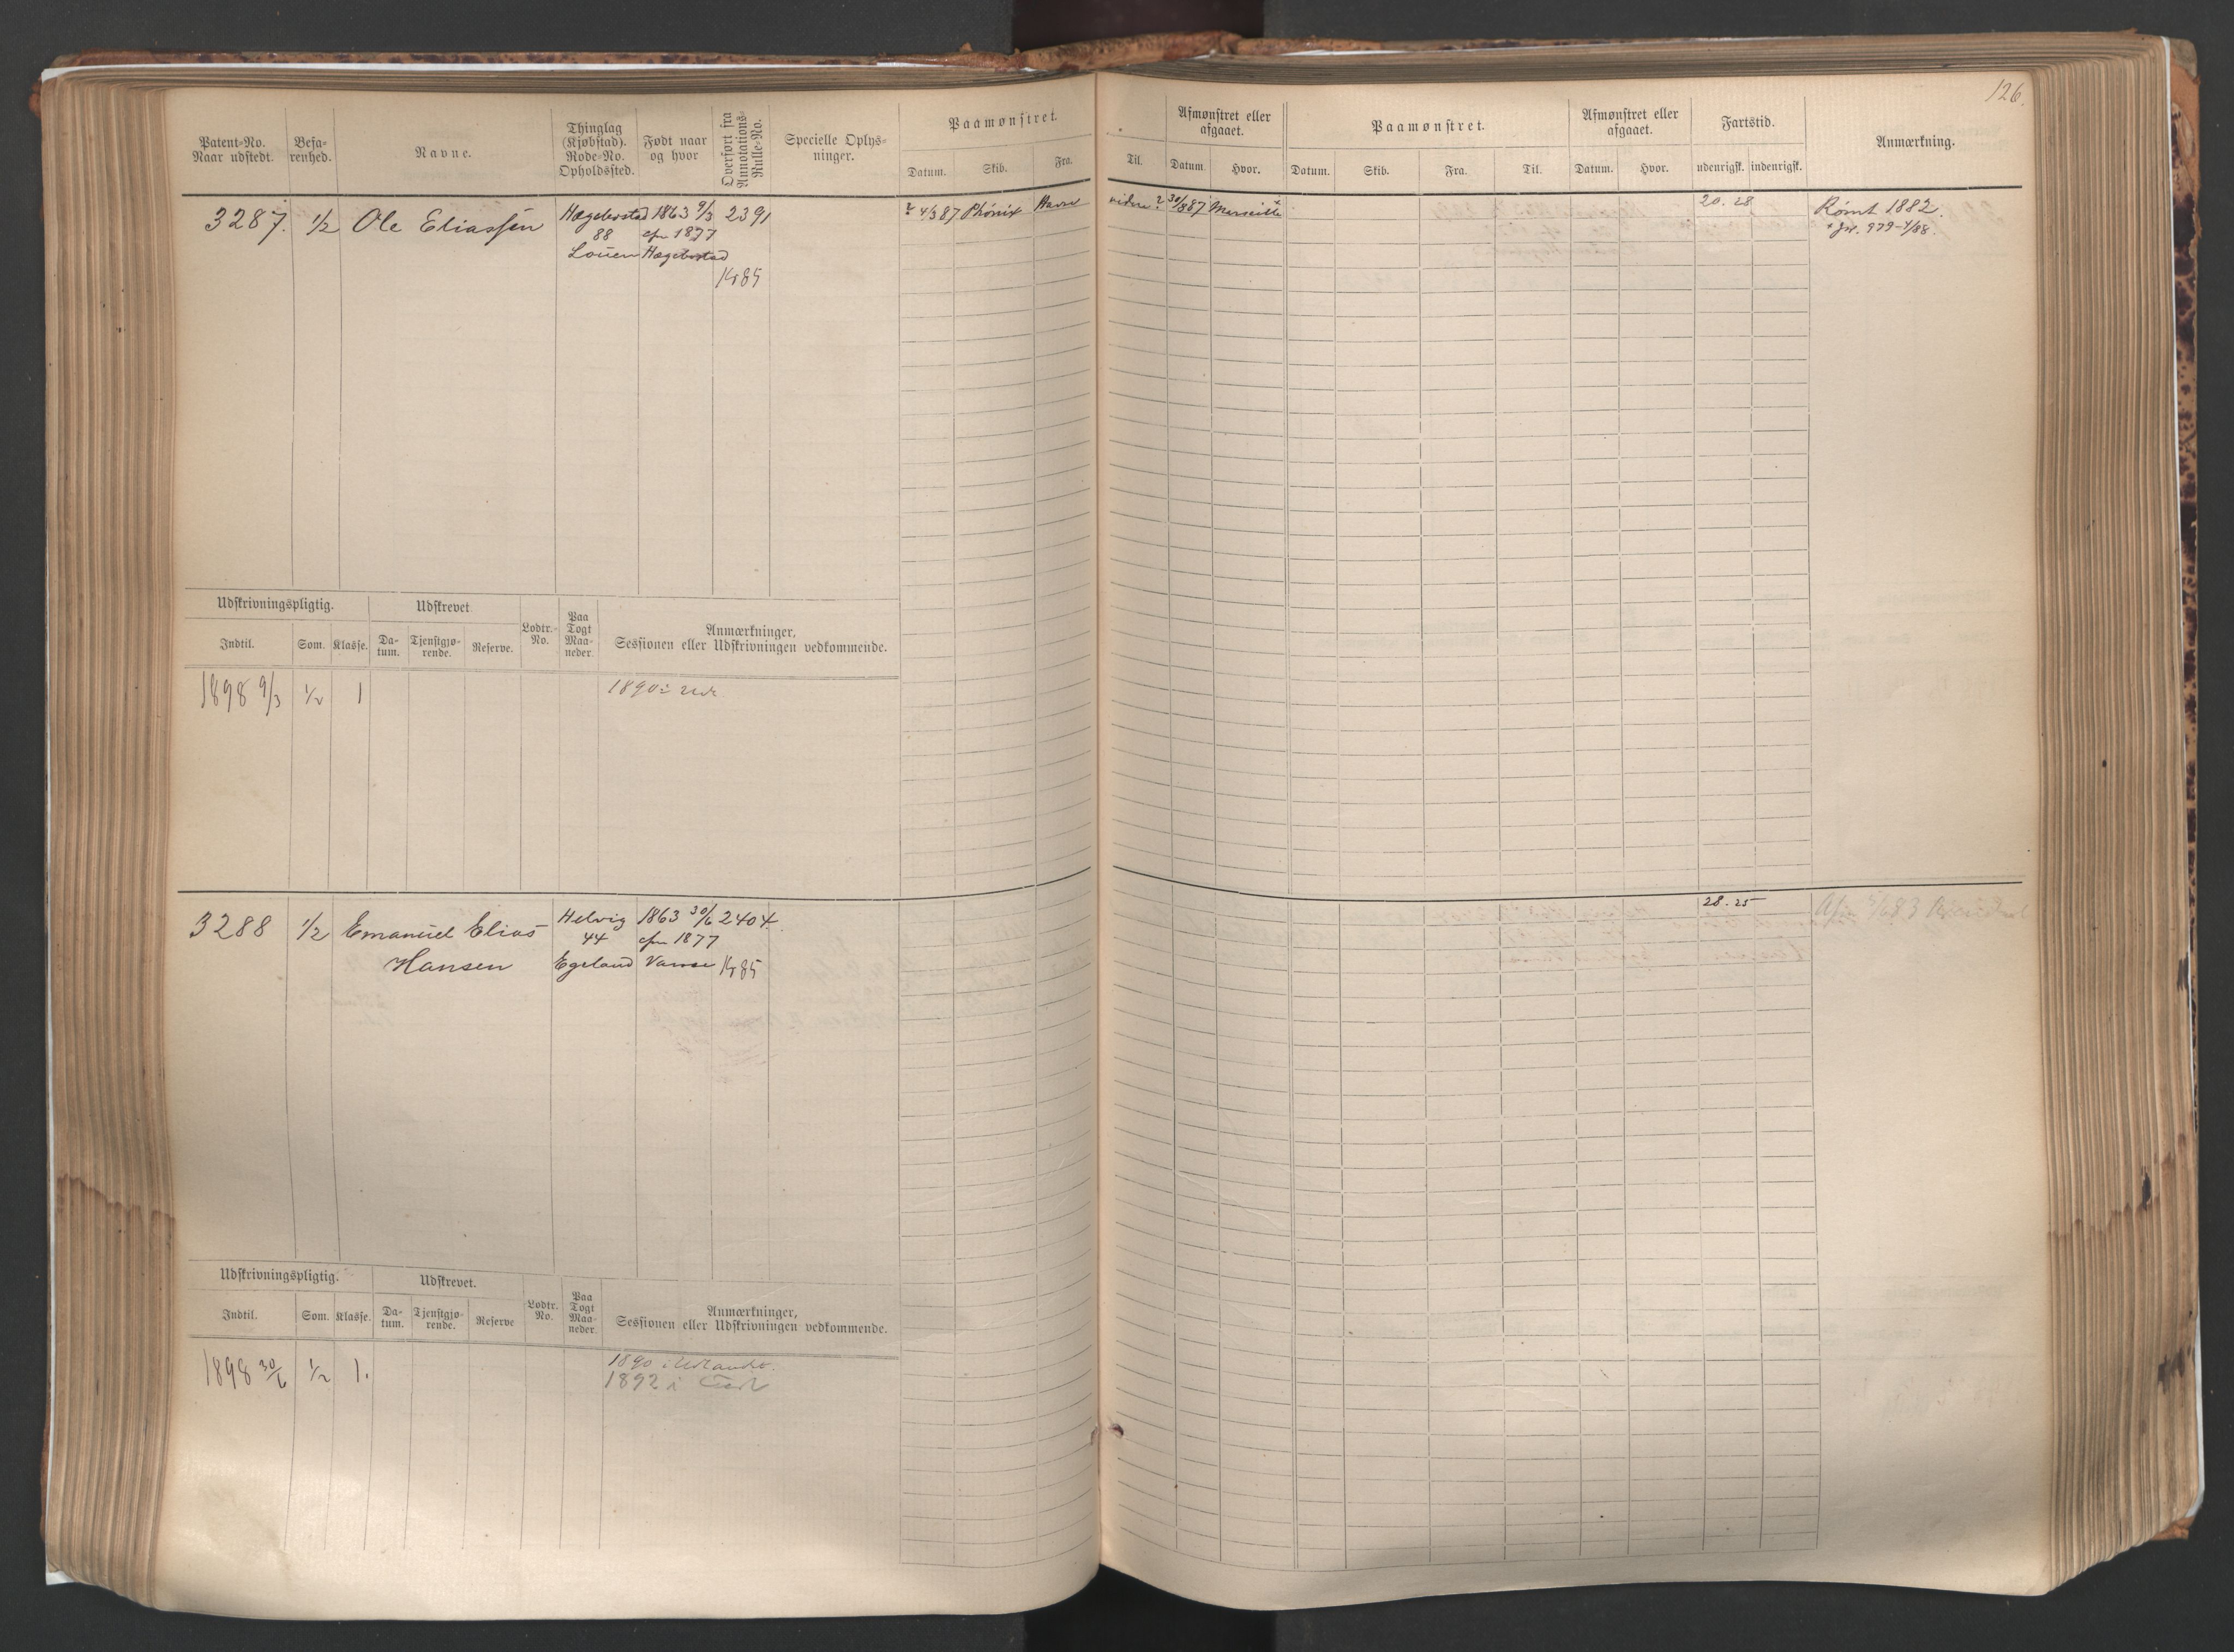 126.
Patent-No. Naar udstedt.
Befarenhed.
Navne.
Thinglag (Kjøbstad). Rode-No. Opholdssted.
Født naar og hvor
Overført fra Annotations-Rulle-No.
Specielle Oplysninger.
Paamønstret.
Datum. Skib. Fra. Til.
Afmønstret eller afgaaet.
Datum. Hvor.
Paamønstret.
Datum. Skib. Fra. Til.
Afmønstret eller afgaaet.
Datum. Hvor.
Fartstid.
udenrigsk. indenrigsk.
Anmærkning.
3287. 1/2 Ole Eliassen Hægebostad 1863 9/3 2391
88 efm 1877
Louen Hægebostad
Kr 85
? 4/3 87 Phönix Havre videre ? 30/8 87 Marseille 20. 28 Rømt 1882.
979-4/88.
Udskrivningspligtig. Udskrevet
Indtil. Som. Klasse. Datum. Tjenstgjørende. Reserve. Lodtr.-No. Paa Togt Maaneder.
Anmærkninger,
Sessionen eller Udskrivningen vedkommende.
1898 9/3 1/2 1 1890 i
3288 1/2 Emanuel Elias Helvig 1863 30/6 2404. 28. 25
44 efm 1877
Hansen Egeland Vanse Kr 85
Udskrivningspligtig. Udskrevet.
Indtil. Som. Klasse. Datum. Tjenstgjørende. Reserve Lodtr. No. Paa Togt Maaneder
Anmærkninger,
Sessionen eller Udskrivningen vedkommende.
1898 30/6 1/2 1. 1890 i Udlandet.
1892 i Fart